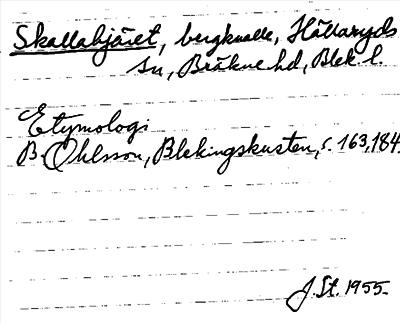 Skallahjäret, bergknalle, Hällaryds
sn, Bräkne hd, Blek l.
Etymologi
B. Ohlsson, Blekingskusten, s. 163, 184.
J. St. 1955.